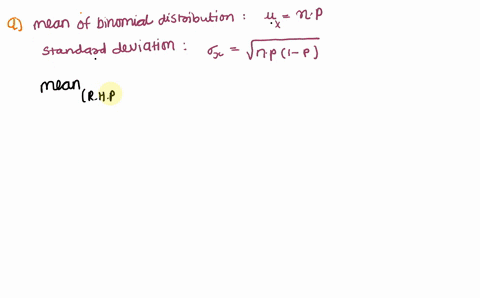 a) mean of binomial distribution : μx = n.p
standard deviation : σx = √n.p(1-p)
mean(R.H.P